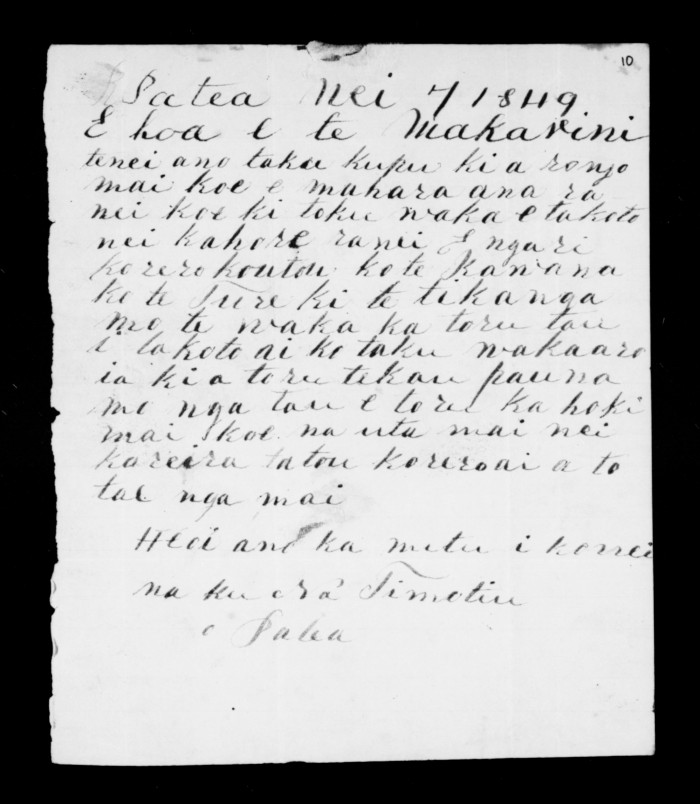 10
Patea Nei 7/1849
E hoa e te Makarini
tenei ano taku kupu ki a rongo
mai koe e mahara ana ra
nei koe ki toku waka e takoto
nei kahore ranei E ngari
korero koutou ko te Kawana
ko te Ture ki te tikanga
mo te waka ka toru tau
i takoto ai ko taku wakaaro
ia ki a toru tekau pauna
mo nga tau e toru ka hoki
mai koe na uta mai nei
kareira tatou korero ai a to
tae nga mai
Heoi ano ka mutu i konei
na ku
Timotiu
Patea